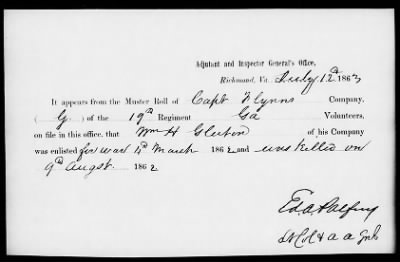 Adjutant and Inspector General's Office,
Richmond, Va. July 12th 1863
It appears from the Muster Roll of Capt Flynns Company,
(G) of the 19th Regiment Ga Volunteers,
on file in this office, that Wm H Gluton of his Company
was enlisted for war 11th March 1862 and was killed on
9th Augst. 1862
Ed. A Palfrey
Lt Col & a a Genl